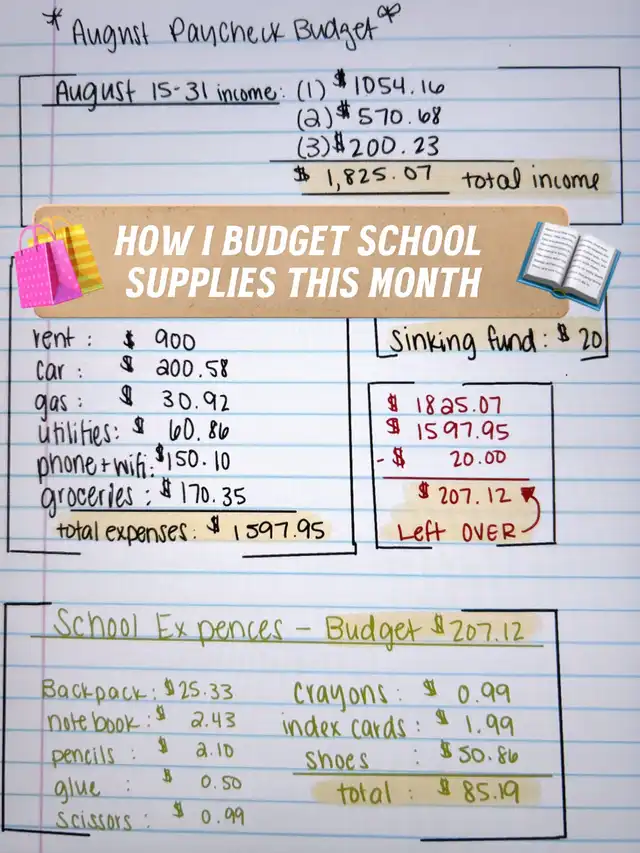 *August Paycheck Budget*
August 15-31 income: (1) $ 1054.16
(2) $ 570.68
(3) $ 200.23
$ 1,825.07 total income
HOW I BUDGET SCHOOL
SUPPLIES THIS MONTH
rent : $ 900
car : $ 200.58
gas : $ 30.92
utilities: $ 60.86
phone + wifi: $150.10
groceries : $ 170.35
total expenses: $ 1597.95
Sinking fund: $ 20
$ 1825.07
$ 1597.95
- $ 20.00
$ 207.12
Left OVER
School Expences - Budget $207.12
Backpack: $25.33
notebook: $ 2.43
pencils : $ 2.10
glue : $ 0.50
scissors : $ 0.99
crayons : $ 0.99
index cards : $ 1.99
shoes : $50.86
total : $ 85.19